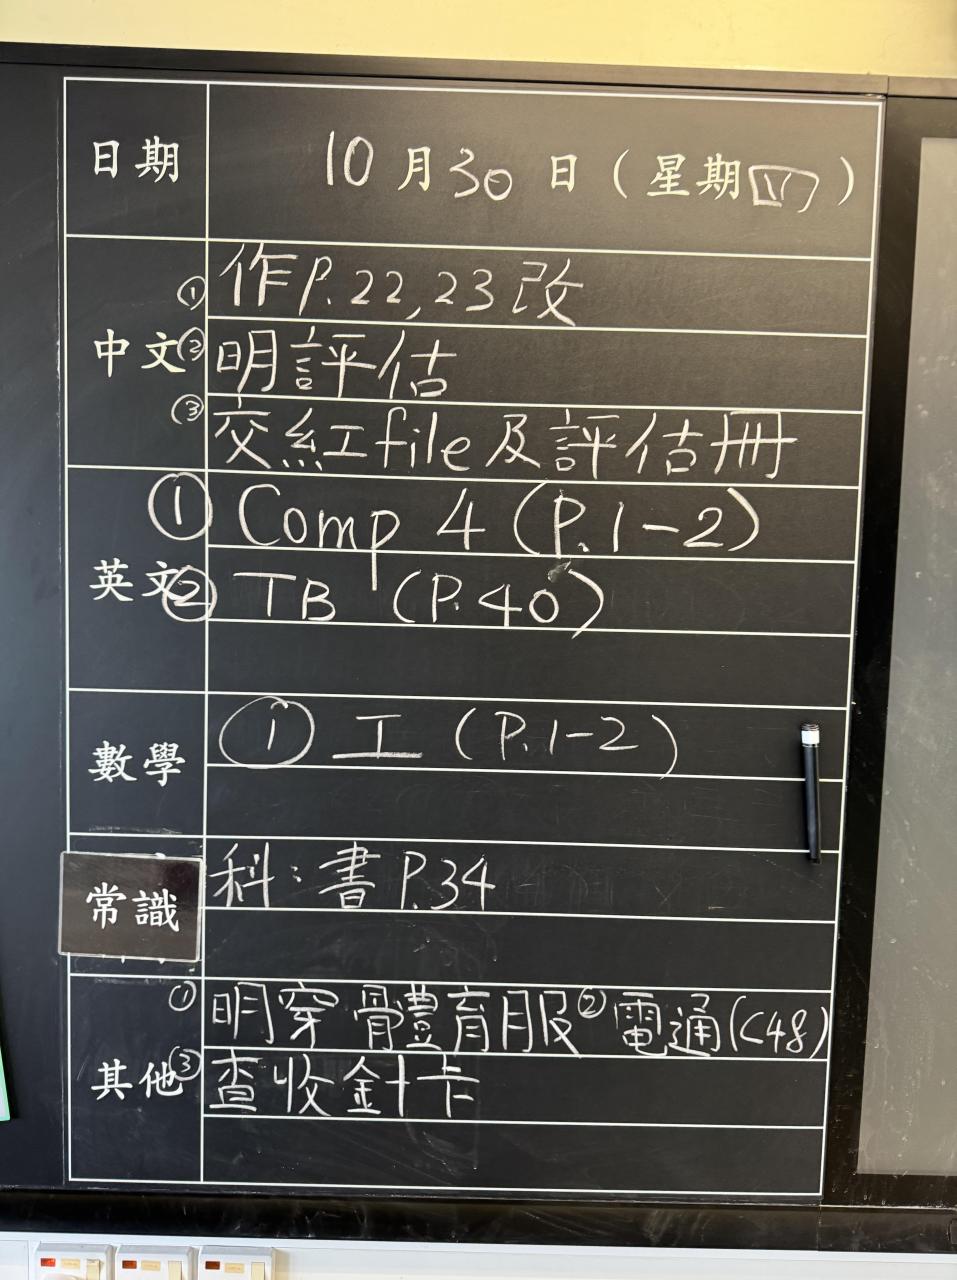 日期 10月30日（星期四）
中文
① 作P.22,23改
② 明評估
③ 交紅file及評估冊
英文
① Comp 4 (P.1-2)
② TB (P.40)
數學
① 工 (P.1-2)
常識
科：書P.34
其他
① 明穿體育服 ② 電通(C48)
③ 查收針卡